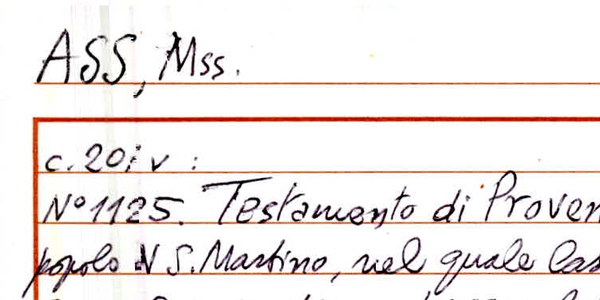 ASS, Mss.
c. 201v :
N° 1125. Testamento di Proven
popolo S. Martino, nel quale las